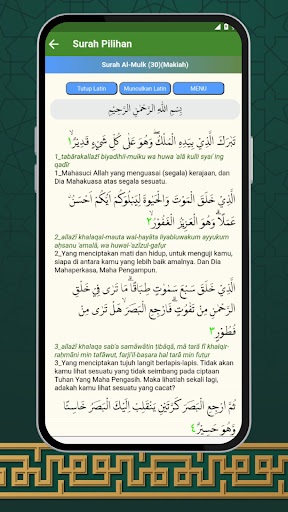 Surah Pilihan
Surah Al-Mulk (30)(Makiah)
Tutup Latin
Munculkan Latin
MENU
بِسْمِ اللّٰهِ الرَّحْمٰنِ الرَّحِيْمِ
تَبٰرَكَ الَّذِيْ بِيَدِهِ الْمُلْكُۖ وَهُوَ عَلٰى كُلِّ شَيْءٍ قَدِيْرٌۙ ١
1_tabārakallażī biyadihil-mulku wa huwa 'alā kulli syai`ing
qadīr
1_Mahasuci Allah yang menguasai (segala) kerajaan, dan
Dia Mahakuasa atas segala sesuatu.
الَّذِيْ خَلَقَ الْمَوْتَ وَالْحَيٰوةَ لِيَبْلُوَكُمْ اَيُّكُمْ اَحْسَنُ
عَمَلًاۗ وَهُوَ الْعَزِيْزُ الْغَفُوْرُۙ ٢
2_allażī khalaqal-mauta wal-ḥayāta liyabluwakum ayyukum
aḥsanu 'amalā, wa huwal-'azīzul-gafụr
2_Yang menciptakan mati dan hidup, untuk menguji kamu,
siapa di antara kamu yang lebih baik amalnya. Dan Dia
Mahaperkasa, Maha Pengampun.
الَّذِيْ خَلَقَ سَبْعَ سَمٰوٰتٍ طِبَاقًاۗ مَا تَرٰى فِيْ خَلْقِ
الرَّحْمٰنِ مِنْ تَفٰوُتٍۗ فَارْجِعِ الْبَصَرَۙ هَلْ تَرٰى مِنْ
فُطُوْرٍ ٣
3_allażī khalaqa sab'a samāwātin ṭibāqā, mā tarā fī khalqir-
raḥmāni min tafāwut, farji'il-baṣara hal tarā min fuṭụr
3_Yang menciptakan tujuh langit berlapis-lapis. Tidak akan
kamu lihat sesuatu yang tidak seimbang pada ciptaan
Tuhan Yang Maha Pengasih. Maka lihatlah sekali lagi,
adakah kamu lihat sesuatu yang cacat?
ثُمَّ ارْجِعِ الْبَصَرَ كَرَّتَيْنِ يَنْقَلِبْ اِلَيْكَ الْبَصَرُ خَاسِئًا
وَّهُوَ حَسِيْرٌ ٤